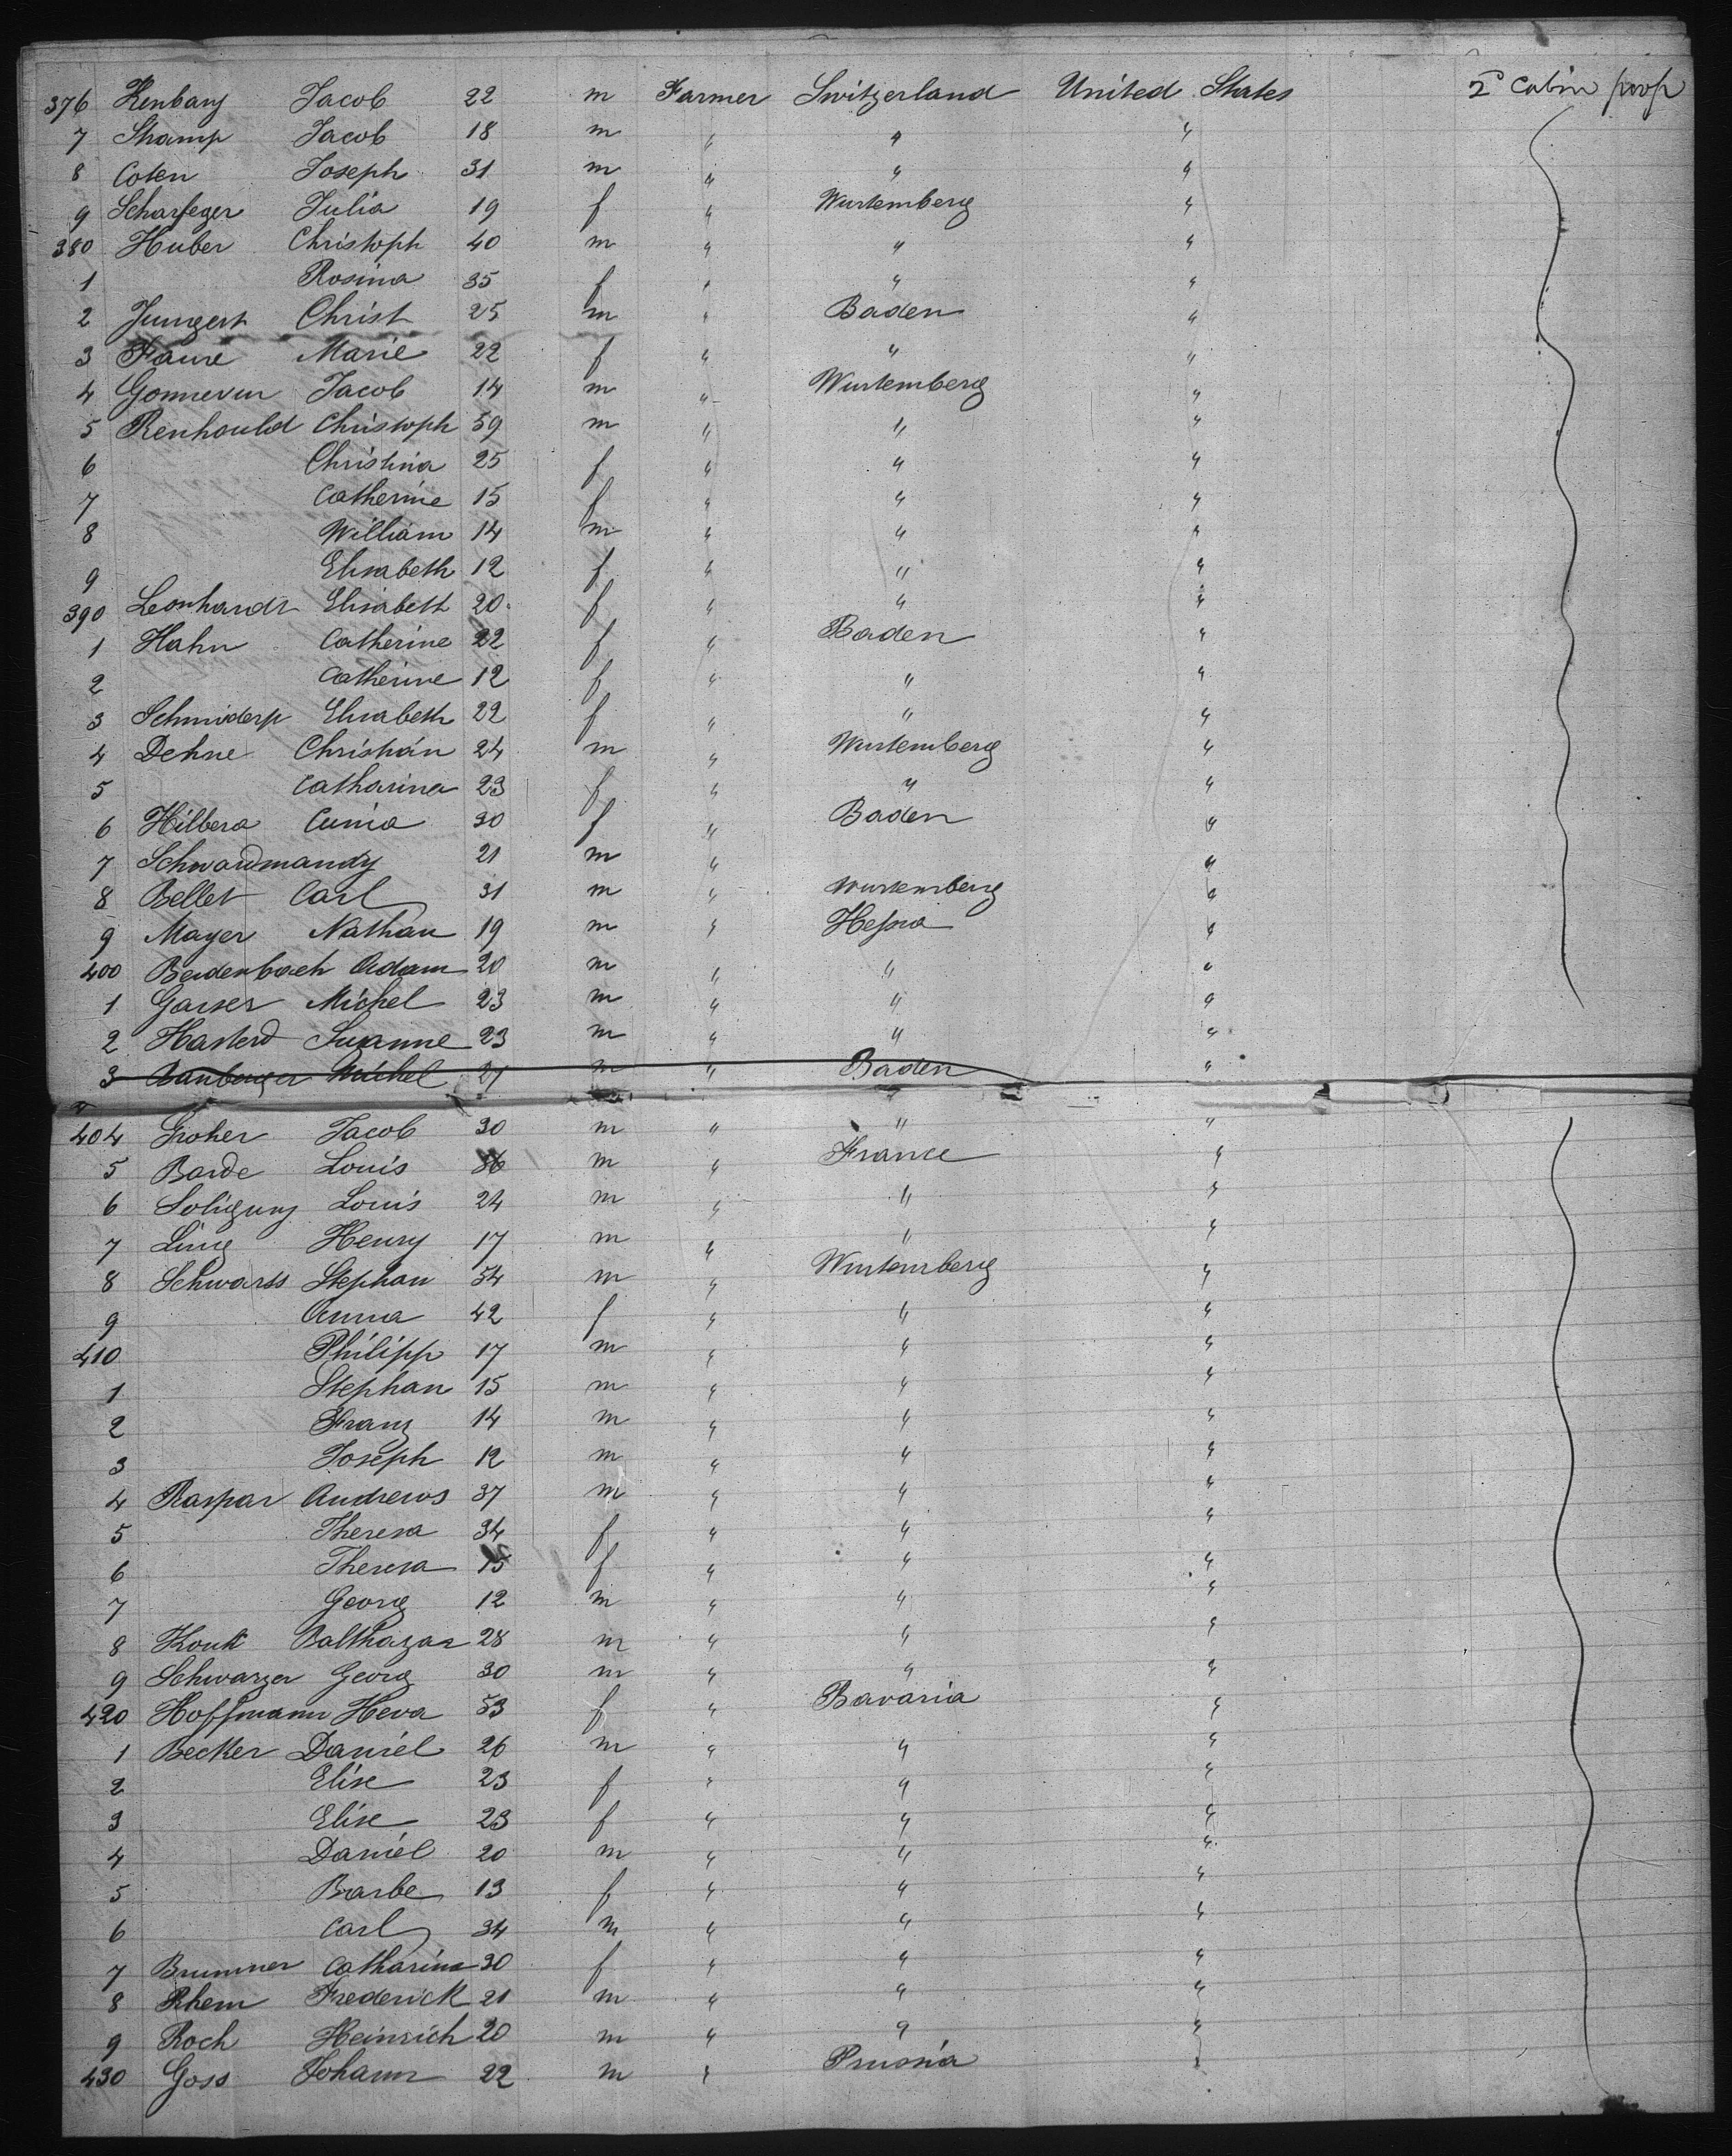 376 Kenbany Jacob 22 m Farmer Switzerland United States 2d Cabin poop
7 Stramp Jacob 18 m " " "
8 Coten Joseph 31 m " " "
9 Scharfeger Julia 19 f " Wurtemberg "
380 Huber Christoph 40 m " " "
1 Rosina 35 f " " "
2 Jungert Christ 25 m " Baden "
3 Faure Marie 22 f " " "
4 Jacob 14 m " Wurtemberg "
5 Renhould Christoph 59 m " " "
6 Christina 25 f " " "
7 Catherine 15 f " " "
8 William 14 m " " "
9 Elisabeth 12 f " " "
390 Leonhardt Elisabeth 20 f " " "
1 Hahn Catherine 22 f " Baden "
2 Catherine 12 f " " "
3 Schmiderp Elisabeth 22 f " " "
4 Dehne Christian 24 m " Wurtemberg "
5 Catharina 23 f " " "
6 Hilbera 30 f " Baden "
7 Schwardmandy 21 m " "
8 Bellet Carl 31 m " Wurtemberg "
9 Mayer Nathan 19 m " Hessia "
400 Beidenbach Adam 20 m " " "
1 Garser Michel 23 m " " "
2 Hasterd Suzanne 23 m " " "
3 Bamberger Michel 21 m " Baden "
404 Groher Jacob 30 m " " "
5 Barde Louis 36 m " France "
6 Soliguny Louis 24 m " " "
7 Ling Henry 17 m " " "
8 Schwarss Stephan 54 m " Wurtemberg "
9 Anna 42 f " " "
410 Philipp 17 m " " "
1 Stephan 15 m " " "
2 Franz 14 m " " "
3 Joseph 12 m " " "
4 Raspar Andrews 37 m " " "
5 Theresa 34 f " " "
6 Theresa 15 f " " "
7 Georg 12 m " " "
8 Kouk Balthazar 28 m " " "
9 Schwarzer Georg 30 m " " "
420 Hoffmann Heva 53 f " Bavaria "
1 Becker Daniel 26 m " " "
2 Elise 23 f " " "
3 Elise 23 f " " "
4 Daniel 20 m " " "
5 Barbe 13 f " " "
6 Carl 34 m " " "
7 Brummer Catharina 30 f " " "
8 Rhem Frederick 21 m " " "
9 Roch Heinrich 20 m " " "
430 Goss Johann 22 m " Prussia "